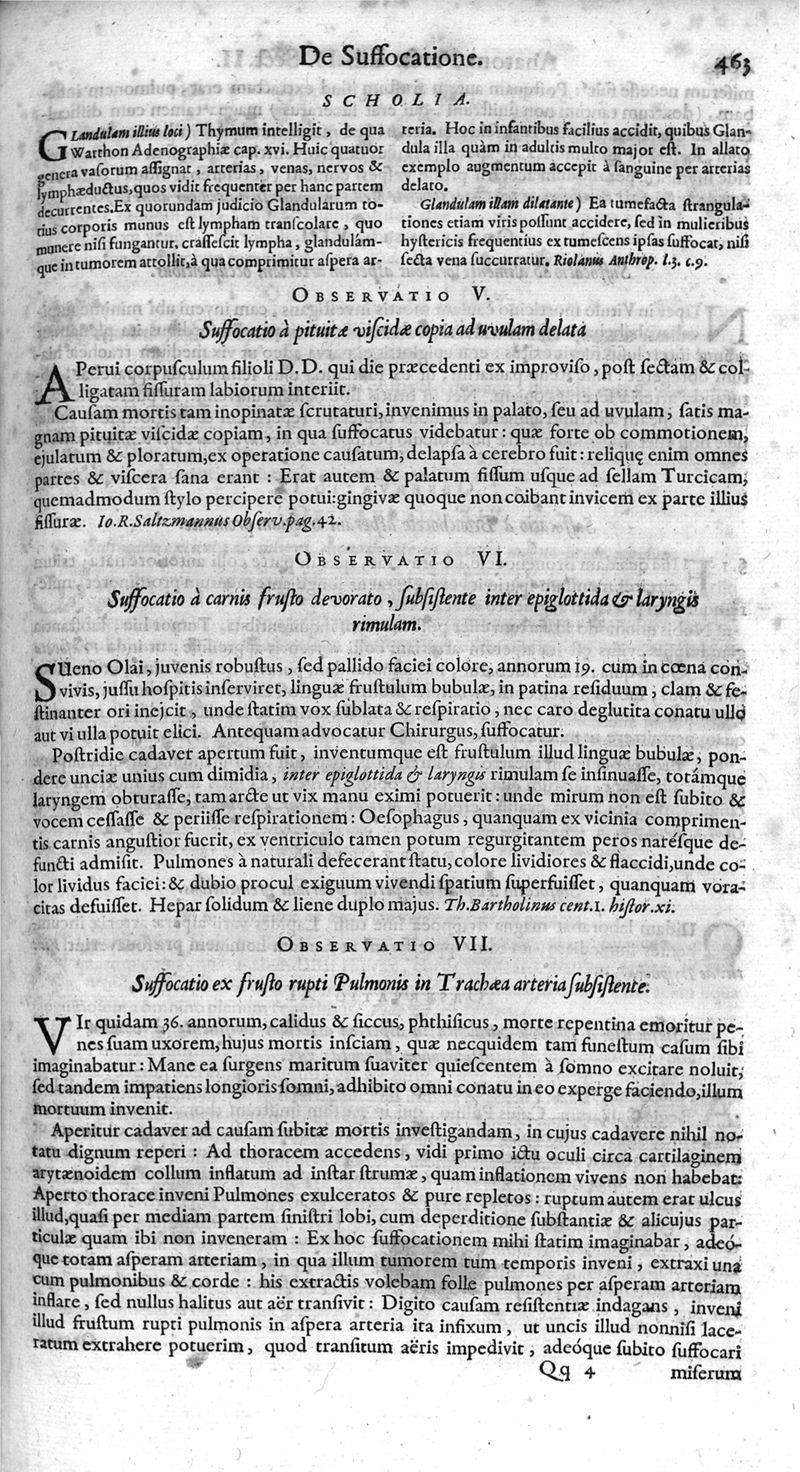 De Suffocatione. 463
SCHOLIA.
GLandulam illius loci) Thymum intelligit, de qua
Warthon Adenographiæ cap. xvi. Huic quatuor
genera vaſorum aſſignat, arterias, venas, nervos &
lymphæductus, quos vidit frequenter per hanc partem
decurrentes. Ex quorundam judicio Glandularum to-
tius corporis munus eſt lympham tranſcolare, quo
munere niſi fungantur, craſſeſcit lympha, glandulám-
que in tumorem attollit, à qua comprimitur aſpera ar-
teria. Hoc in infantibus facilius accidit, quibus Glan-
dula illa quàm in adultis multo major eſt. In allato
exemplo augmentum accepit à ſanguine per arterias
delato.
Glandulam illam dilatante) Ea tumefacta ſtrangula-
tiones etiam viris poſſunt accidere, ſed in mulieribus
hyſtericis frequentius extumeſcens ipſas ſuffocat, niſi
ſecta vena ſuccurratur. Riolanus Anthrop. l.3. c.9.
OBSERVATIO V.
Suffocatio à pituitæ viſcidæ copia ad uvulam delata
APerui corpuſculum filioli D.D. qui die præcedenti ex improviſo, poſt ſectam & col-
ligatam fiſſuram labiorum interiit.
Cauſam mortis tam inopinatæ ſcrutaturi, invenimus in palato, ſeu ad uvulam, ſatis ma-
gnam pituitæ viſcidæ copiam, in qua ſuffocatus videbatur: quæ forte ob commotionem,
ejulatum & ploratum, ex operatione cauſatum, delapſa à cerebro fuit: reliquę enim omnes
partes & viſcera ſana erant: Erat autem & palatum fiſſum uſque ad ſellam Turcicam,
quemadmodum ſtylo percipere potui: gingivæ quoque non coibant invicem ex parte illius
fiſſuræ. Io.R.Saltzmannus Obſerv.pag.42.
OBSERVATIO VI.
Suffocatio à carnis fruſto devorato, ſubſiſtente inter epiglottida & laryngis
rimulam.
SUeno Olai, juvenis robuſtus, ſed pallido faciei colore, annorum 19. cum in cœna con-
vivis, juſſu hoſpitis inſerviret, linguæ fruſtulum bubulæ, in patina reſiduum, clam & fe-
ſtinanter ori inejcit, unde ſtatim vox ſublata & reſpiratio, nec caro deglutita conatu ullo
aut vi ulla potuit elici. Antequam advocatur Chirurgus, ſuffocatur.
Poſtridie cadaver apertum fuit, inventumque eſt fruſtulum illud linguæ bubulæ, pon-
dere unciæ unius cum dimidia, inter epiglottida & laryngis rimulam ſe inſinuaſſe, totámque
laryngem obturaſſe, tam arcte ut vix manu eximi potuerit: unde mirum non eſt ſubito &
vocem ceſſaſſe & periiſſe reſpirationem: Oeſophagus, quanquam ex vicinia comprimen-
tis carnis anguſtior fuerit, ex ventriculo tamen potum regurgitantem per os naréſque de-
functi admiſit. Pulmones à naturali defecerant ſtatu, colore lividiores & flaccidi, unde co-
lor lividus faciei: & dubio procul exiguum vivendi ſpatium ſuperfuiſſet, quanquam vora-
citas defuiſſet. Hepar ſolidum & liene duplo majus. Th.Bartholinus cent.1. hiſtor.xi.
OBSERVATIO VII.
Suffocatio ex fruſto rupti Pulmonis in Trachæa arteria ſubſiſtente.
VIr quidam 36. annorum, calidus & ſiccus, phthiſicus, morte repentina emoritur pe-
nes ſuam uxorem, hujus mortis inſciam, quæ necquidem tam funeſtum caſum ſibi
imaginabatur: Mane ea ſurgens maritum ſuaviter quieſcentem à ſomno excitare noluit,
ſed tandem impatiens longioris ſomni, adhibito omni conatu in eo experge faciendo, illum
mortuum invenit.
Aperitur cadaver ad cauſam ſubitæ mortis inveſtigandam, in cujus cadavere nihil no-
tatu dignum reperi: Ad thoracem accedens, vidi primo ictu oculi circa cartilaginem
arytænoidem collum inflatum ad inſtar ſtrumæ, quam inflationem vivens non habebat:
Aperto thorace inveni Pulmones exulceratos & pure repletos: ruptum autem erat ulcus
illud, quaſi per mediam partem ſiniſtri lobi, cum deperditione ſubſtantiæ & alicujus par-
ticulæ quam ibi non inveneram: Ex hoc ſuffocationem mihi ſtatim imaginabar, adeó-
que totam aſperam arteriam, in qua illum tumorem tum temporis inveni, extraxi una
cum pulmonibus & corde: his extractis volebam folle pulmones per aſperam arteriam
inflare, ſed nullus halitus aut aër tranſivit: Digito cauſam reſiſtentiæ indagans, inveni
illud fruſtum rupti pulmonis in aſpera arteria ita infixum, ut uncis illud nonniſi lace-
ratum extrahere potuerim, quod tranſitum aëris impedivit, adeóque ſubito ſuffocari
Qq 4 miſerum